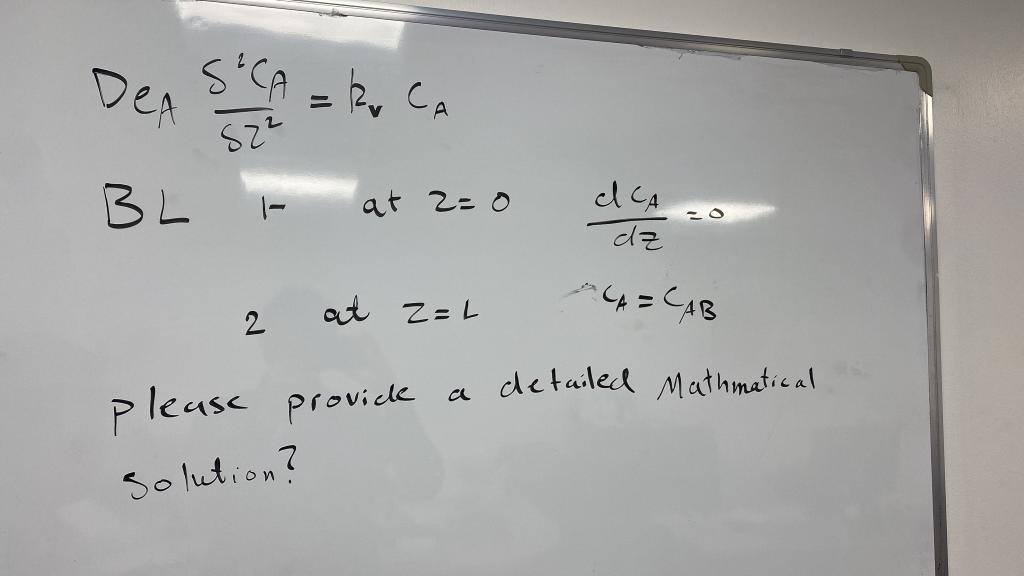 DeA δ²CA/δZ² = kv CA
BL 1- at z=0 dCA/dz =0
2 at z=L CA = CAB
please provide a detailed Mathmatical
solution?